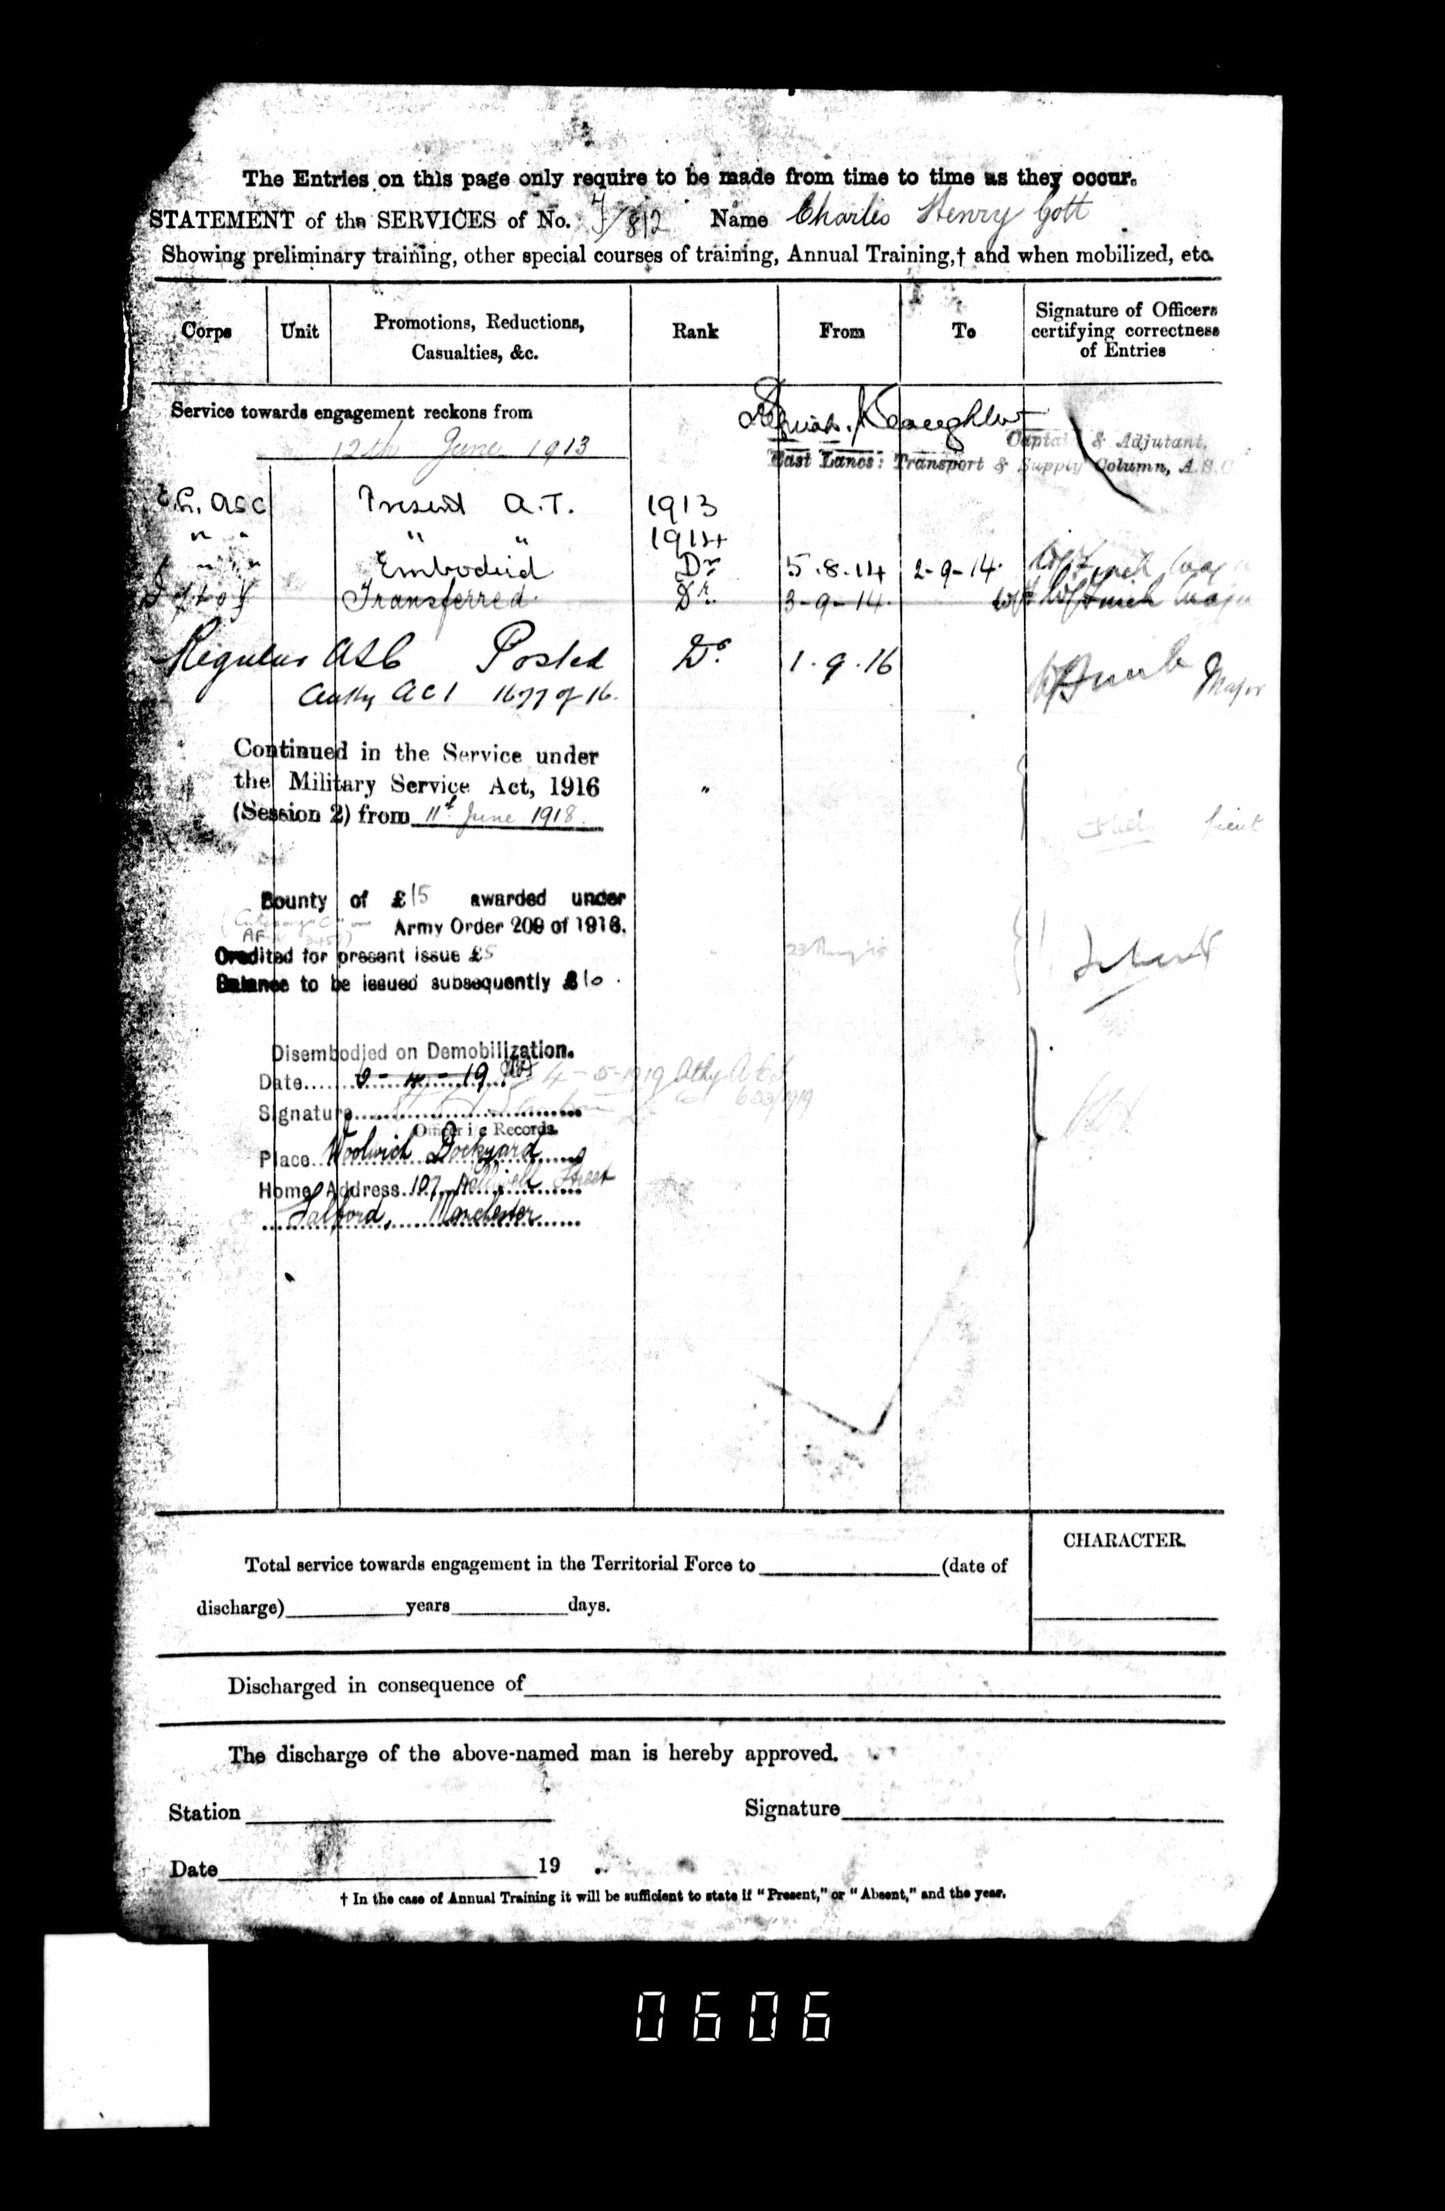 The Entries on this page only require to be made from time to time as they occur.
STATEMENT of the SERVICES of No. T/812 Name Charles Henry Gott
Showing preliminary training, other special courses of training, Annual Training,† and when mobilized, etc.
Corps Unit Promotions, Reductions, Casualties, &c. Rank From To Signature of Officers certifying correctness of Entries
Service towards engagement reckons from
12th June 1913
Captain & Adjutant.
East Lancs: Transport & Supply Column, A.S.C.
E.L. ASC Present A.T. 1913
" " " " 1914
" " " Embodied Dr 5.8.14 2-9-14.
Transferred Dr. 3-9-14.
Regular ASC Posted Dr. 1.9.16 Major
Authy ACI 1677 of 16.
Continued in the Service under
the Military Service Act, 1916 "
(Session 2) from 11th June 1918. Lieut
Bounty of £15 awarded under
Army Order 209 of 1916.
AF
Credited for present issue £5
Balance to be issued subsequently £10.
Disembodied on Demobilization.
Date 4-5-1919 Athy
Signature
Officer i/c Records.
Place Woolwich Dockyard
Home Address 107, Street
Salford, Manchester
Total service towards engagement in the Territorial Force to (date of
CHARACTER.
discharge) years days.
Discharged in consequence of
The discharge of the above-named man is hereby approved.
Station Signature
Date 19
† In the case of Annual Training it will be sufficient to state if "Present," or "Absent," and the year.
0606